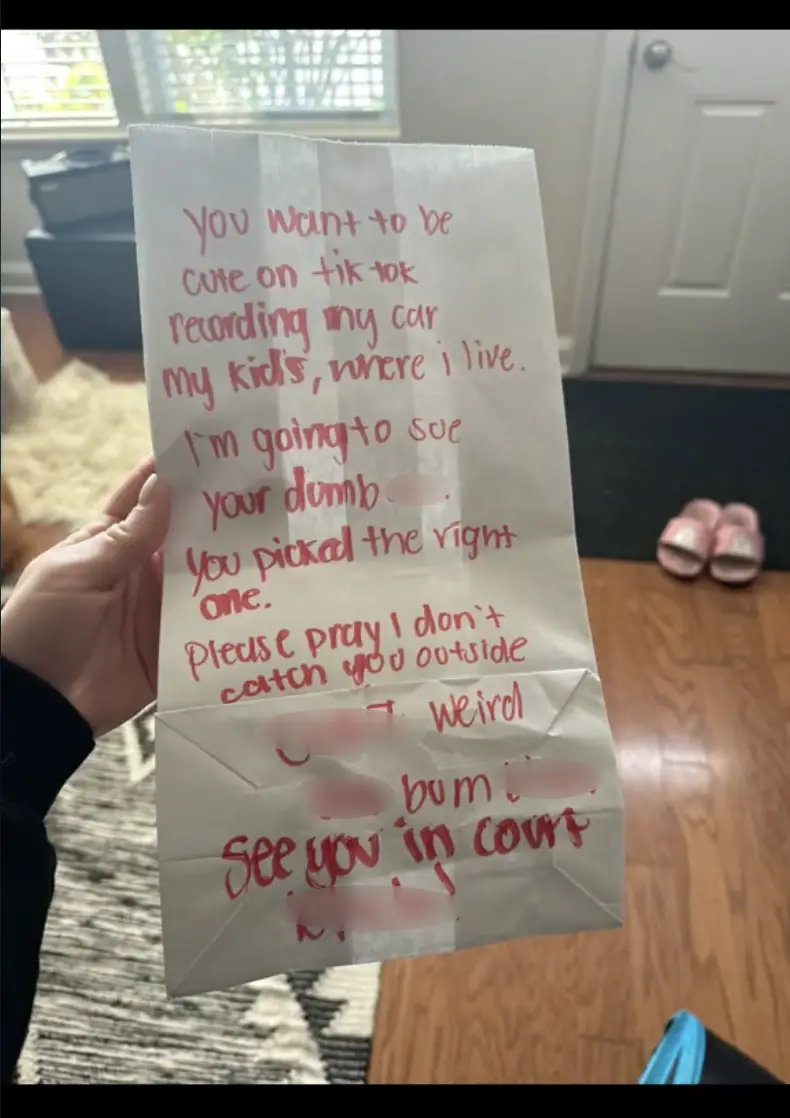 you want to be
cute on tik tok
recording my car
my kid's, where i live.
I'm going to sue
your dumb
you picked the right
one.
Please pray I don't
catch you outside
weird
bum
see you in court